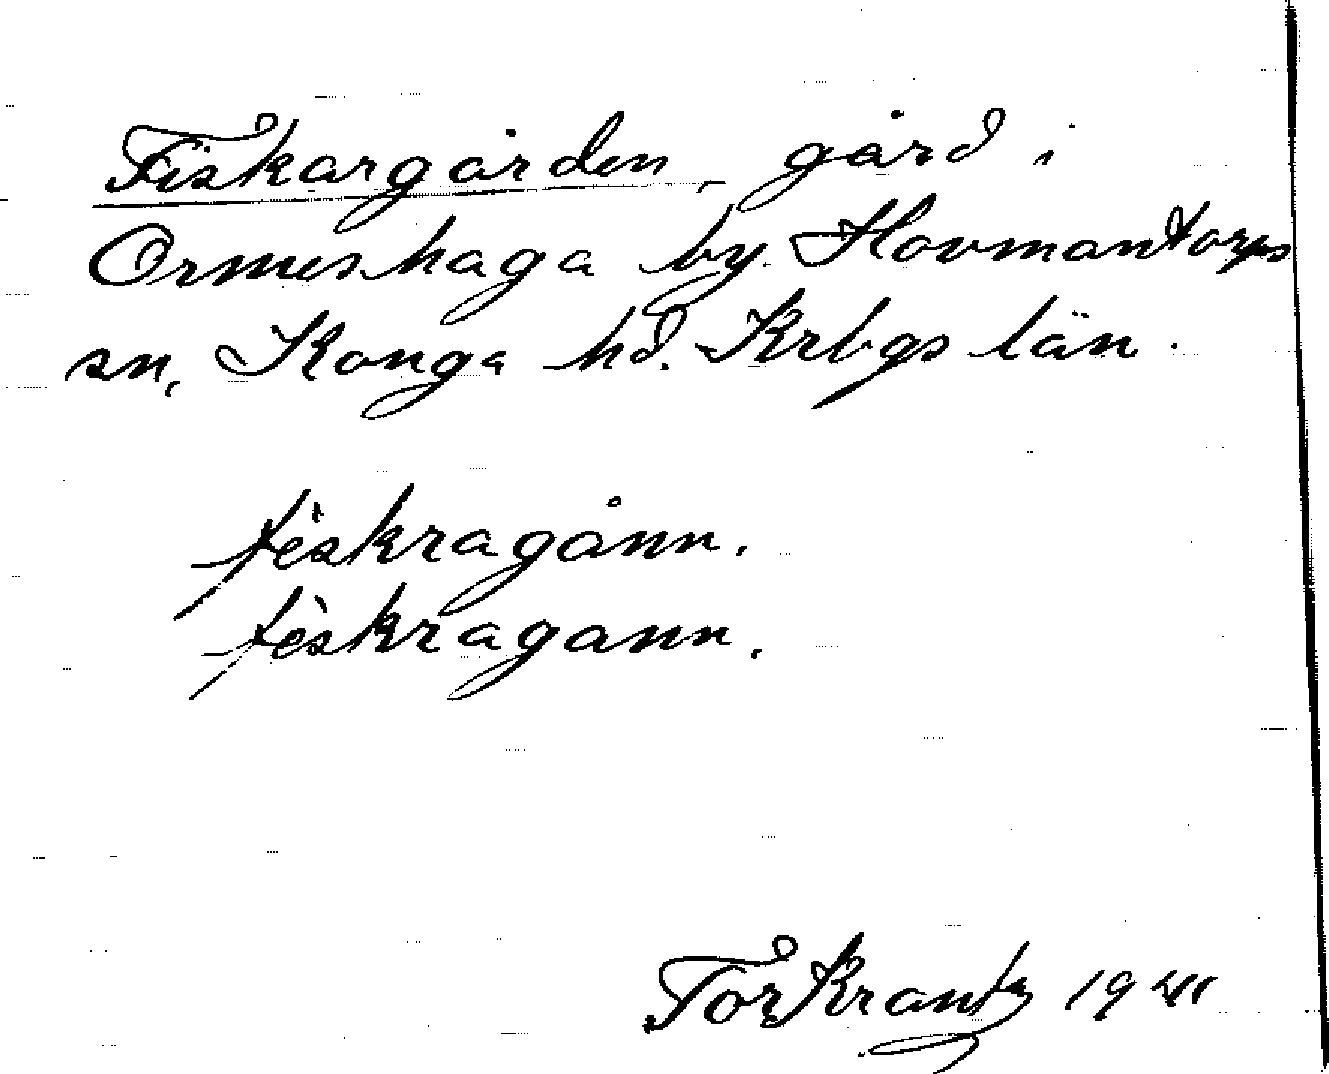 Fiskargården, gård i
Ormeshaga by. Hovmantorps
sn, Konga hd. Krbgs län.
fèskragånn.
fèskragann.
Tor Krantz 1941